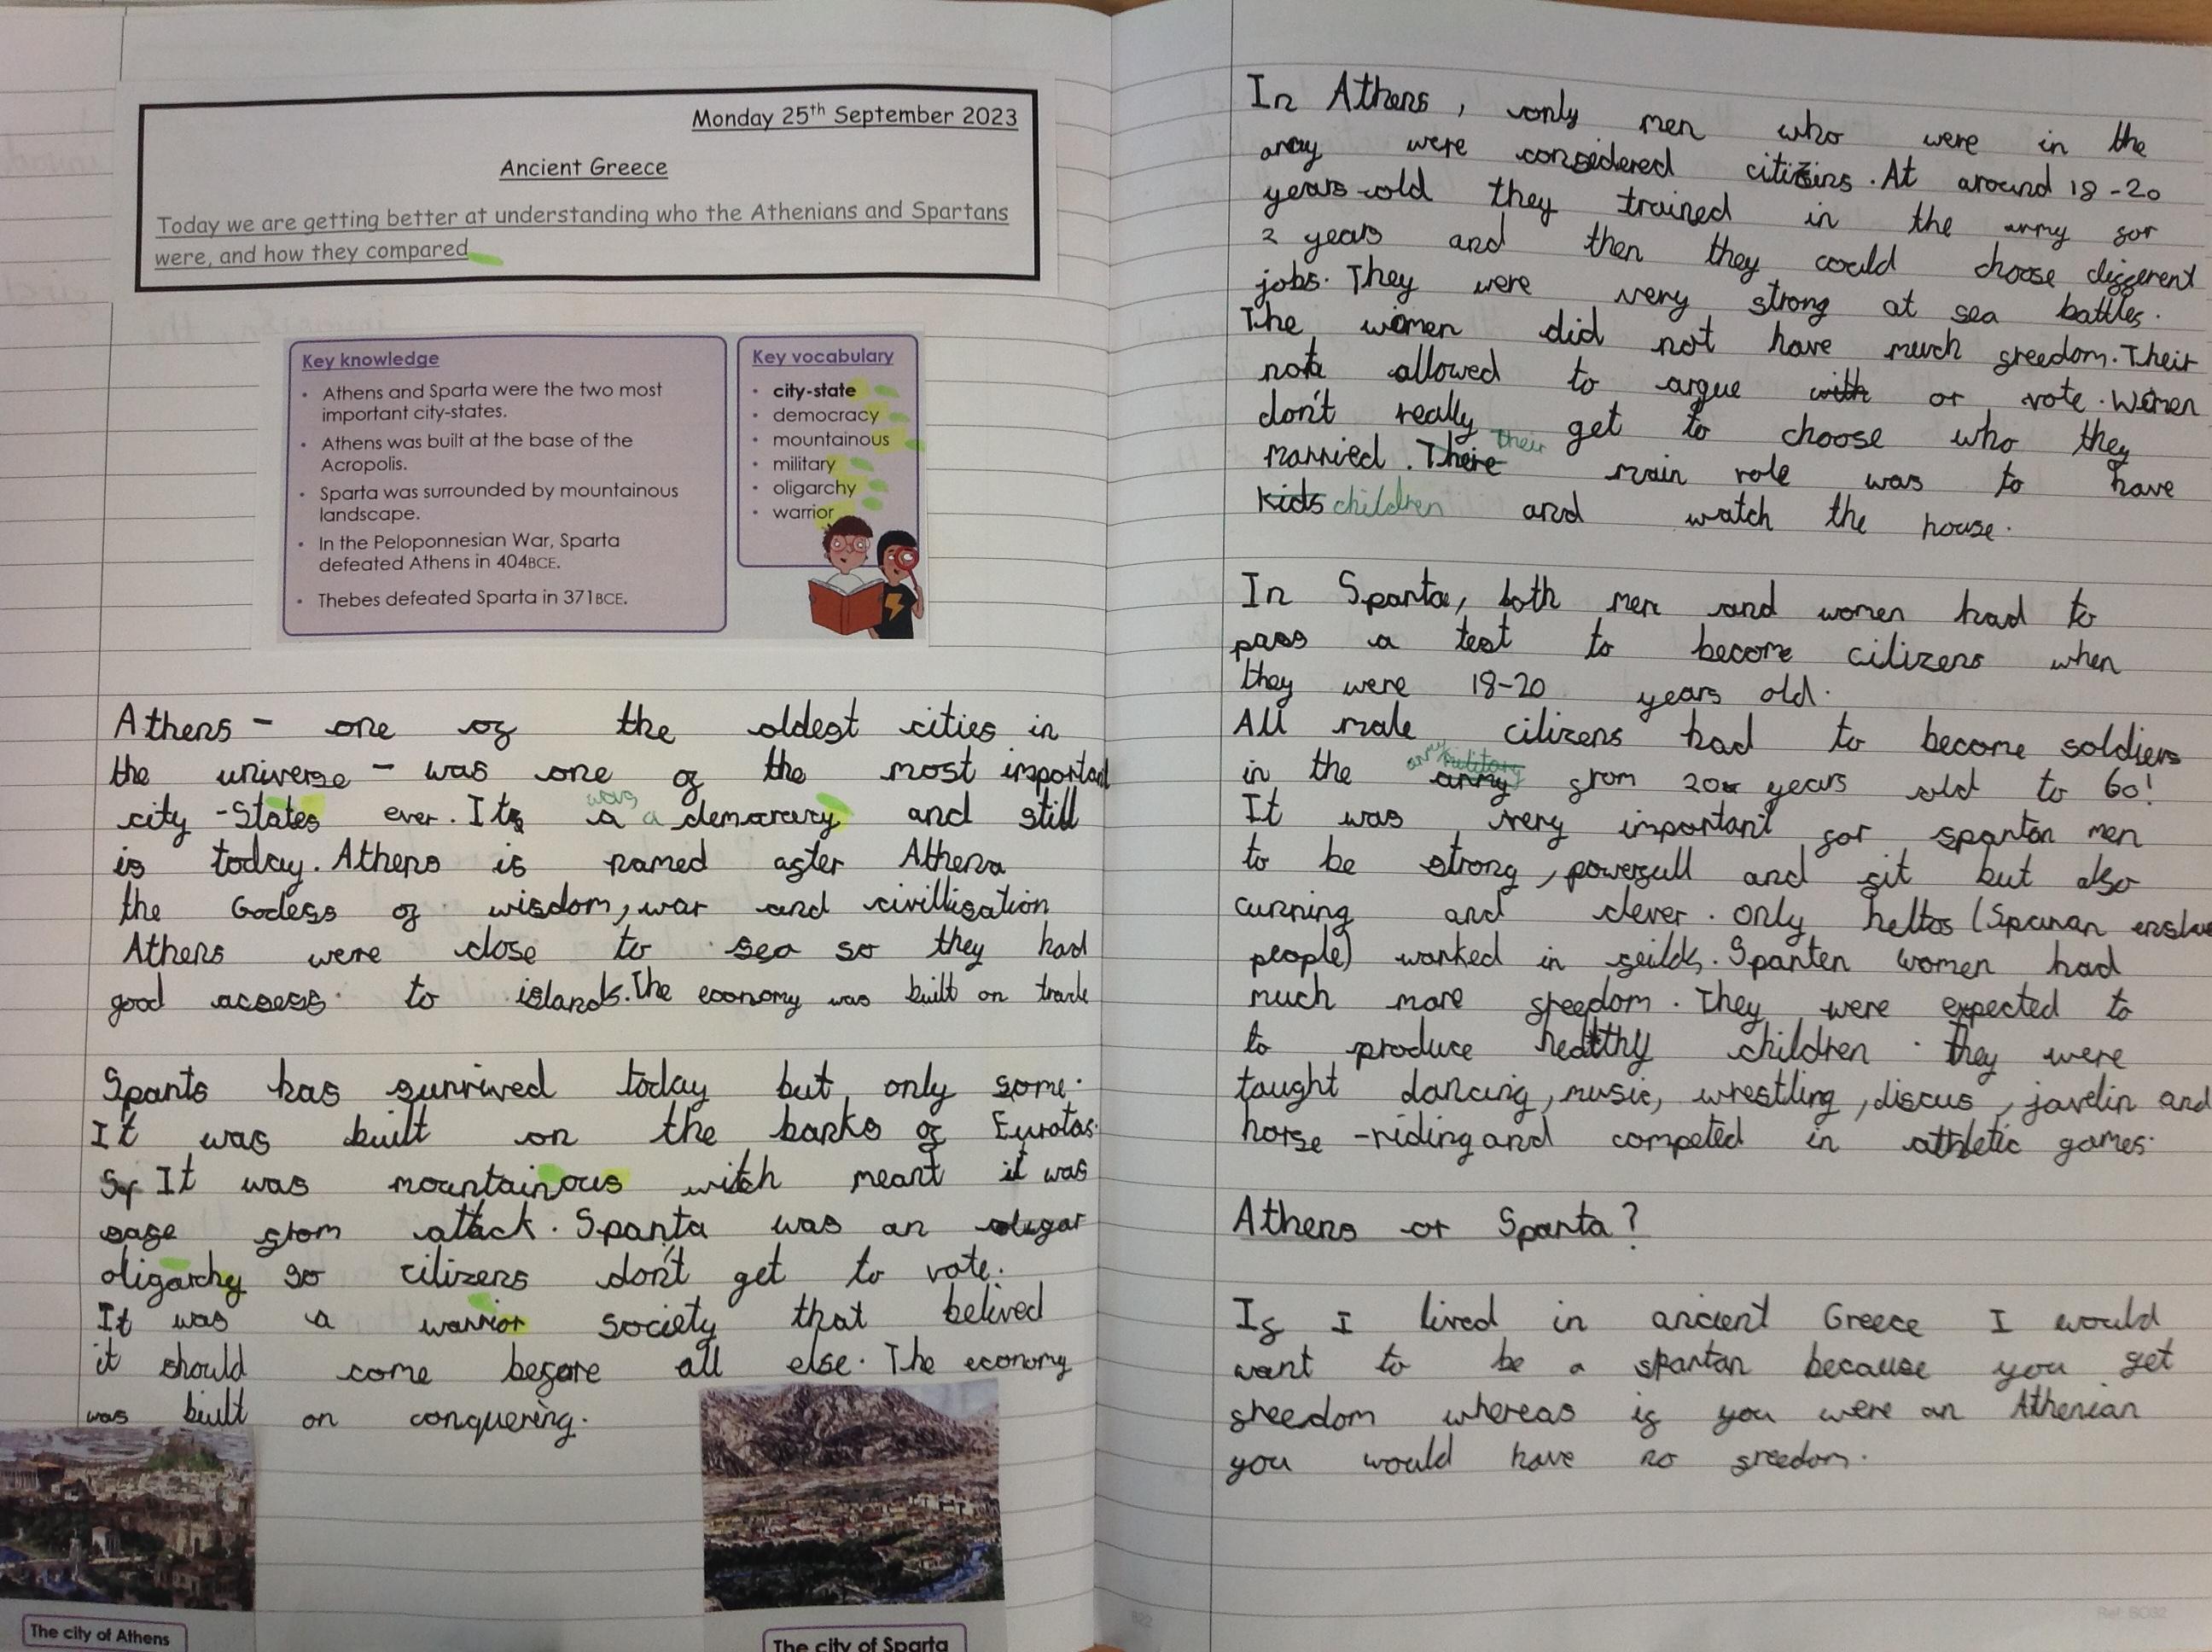 Monday 25th September 2023
Ancient Greece
Today we are getting better at understanding who the Athenians and Spartans
were, and how they compared
Key knowledge
• Athens and Sparta were the two most
important city-states.
• Athens was built at the base of the
Acropolis.
• Sparta was surrounded by mountainous
landscape.
• In the Peloponnesian War, Sparta
defeated Athens in 404BCE.
• Thebes defeated Sparta in 371BCE.
Key vocabulary
• city-state
• democracy
• mountainous
• military
• oligarchy
• warrior
Athens - one of the oldest cities in
the universe - was one of the most important
city-States ever. It was a democracy and still
is today. Athens is named after Athena
the Godess of wisdom, war and civillisation
Athens were close to sea so they had
good access to islands. The economy was built on trade
Sparts has survived today but only some.
It was built on the banks of Eurotas.
It was mountainous witch meant it was
safe from attack. Sparta was an oligar
oligarchy so citizens don't get to vote.
It was a warrior society that belived
it should come before all else. The economy
was built on conquering.
The city of Athens
The city of Sparta
In Athens, only men who were in the
army were considered citizins. At around 18-20
years old they trained in the army for
2 years and then they could choose different
jobs. They were very strong at sea battles.
The women did not have much freedom. Their
not allowed to argue with or vote. Women
don't really get to choose who they
married. There their main role was to have
kids children and watch the house.
In Sparta, both men and women had to
pass a test to become citizens when
they were 18-20 years old.
All male citizens had to become soldiers
in the army military army from 20 years old to 60!
It was very important for spartan men
to be strong, powerfull and fit but also
cunning and clever. only heltos (Sparan
people) worked in feilds. Sparten women had
much more freedom. They were expected to
to produce healthy children. they were
taught dancing, music, wrestling, discus, javelin and
horse-riding and competed in athletic games.
Athens or Sparta?
If I lived in ancient Greece I would
want to be a spartan because you get
freedom whereas if you were an Athenian
you would have no freedom.